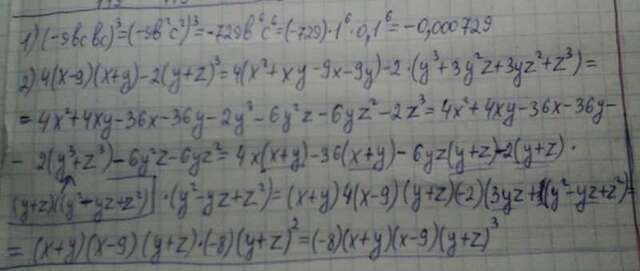 1) (-9bcbc)³=(-9b²c²)³=-729b⁶c⁶=(-729)·1⁶·0,1⁶=-0,000729
2) 4(x-9)(x+y)-2(y+z)³=4(x²+xy-9x-9y)-2·(y³+3y²z+3yz²+z³)=
=4x²+4xy-36x-36y-2y³-6y²z-6yz²-2z³=4x²+4xy-36x-36y-
- 2(y³+z³)-6y²z-6yz²=4x(x+y)-36(x+y)-6yz(y+z)-2(y+z)·
(y+z)(y²-yz+z²) ·(y²-yz+z²)=(x+y)4(x-9)(y+z)(-2)(3yz+1(y²-yz+z²)=
=(x+y)(x-9)(y+z)·(-8)(y+z)²=(-8)(x+y)(x-9)(y+z)³